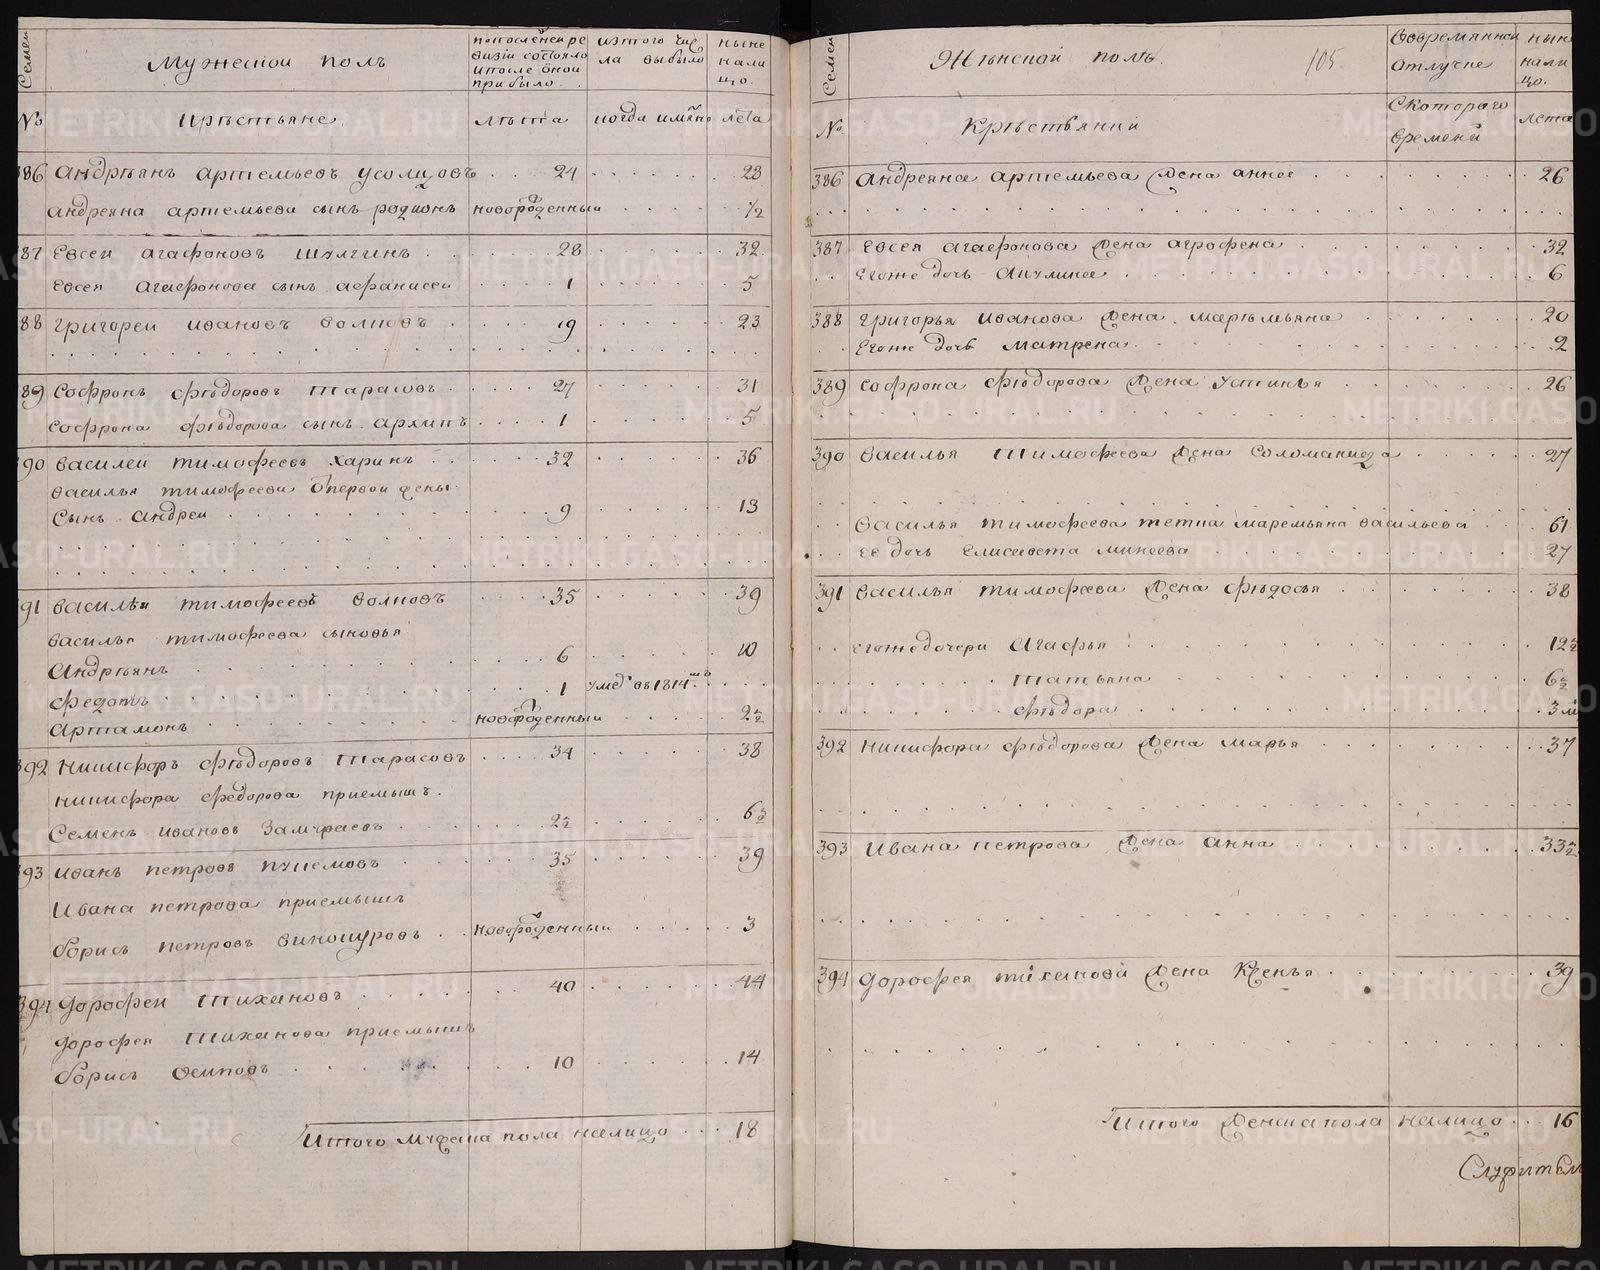 Семеи
Мужескои полъ
попоследнеи ре
визіи состояло
ипосле оной
прибыло
изтого чис
ла выбыло
ныне
нали
цо.
№
Крестьяне
лѣта
когда имянно
лета
386 Андреянъ артемьевъ усолцовъ 24 28
андреяна артемьева сынъ родионъ новорожденныи 1/2
387 Евсеи агафоновъ шулгинъ 28 32
евсея агафонова сынъ афанасеи 1 5
388 григореи ивановъ волковъ 19 23
389 Софронъ фѣдоровъ тарасовъ 27 31
софрона фѣдорова сынъ архипъ 1 5
390 василеи тимофеевъ харинъ 32 36
василья тимофеева отпервои жены
сынъ андреи 9 13
391 василѣи тимофеевъ волковъ 35 39
василья тимофеева сыновья
Андреянъ 6 10
федотъ 1 умер въ 1814мъ
артамонъ новорожденныи 2 1/2
392 никифоръ фѣдоровъ тарасовъ 34 38
никифора федорова приемышъ
Семенъ ивановъ Замураевъ 2 1/2 6 1/2
393 иванъ петровъ пупемовъ 35 39
Ивана петрова приемышъ
борисъ петровъ винокуровъ новорожденныи 3
394 дорофеи тихановъ 40 44
дорофея тиханова приемышъ
борисъ осиповъ 10 14
Итого мужеска пола налицо 18
Семеи
Жѣнской полъ
105
вовремяннои
отлучке
ныне
нали
цо.
№
Крѣстьянки
Скотораго
времени
лета
386 андреяна артемьева жена анна 26
387 евсея агафонова жена аграфена 32
егоже дочь акулина 6
388 григорья иванова жена маремьяна 20
егоже дочь матрена 2
389 софрона фѣдорова жена устинья 26
390 василья тимофеева жена соломанида 27
василья тимофеева тетка маремьяна васильева 61
ее дочь елисавета микеева 27
391 василья тимофеева жена фѣдосья 38
егоже дочери агафья 12 1/2
татьяна 6 1/2
фѣдора 3 м
392 никифора фѣдорова жена марья 37
393 ивана петрова жена анна 33 1/2
394 дорофея тиханова жена Ксенья 39
Итого женска пола налицо 16
METRIKI.GASO-URAL.RU